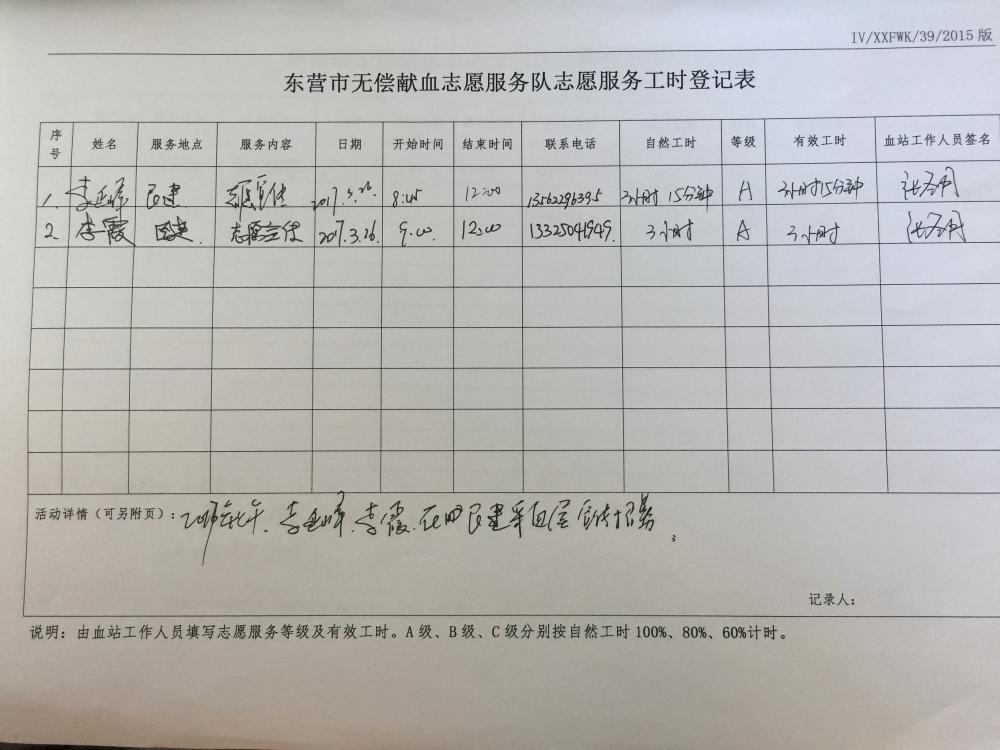 IV/XXFWK/39/2015版
东营市无偿献血志愿服务队志愿服务工时登记表
序号 姓名 服务地点 服务内容 日期 开始时间 结束时间 联系电话 自然工时 等级 有效工时 血站工作人员签名
1. 民建 2017.3.26. 12:00 13562296395 3小时15分钟 A 3小时15分钟
2. 李霞 志愿宣传 2017.3.26. 9:00 12:00 13325041949. 3小时 A 3小时
活动详情（可另附页）： 李霞 民建采血屋宣传招募
记录人：
说明：由血站工作人员填写志愿服务等级及有效工时。A级、B级、C级分别按自然工时100%、80%、60%计时。